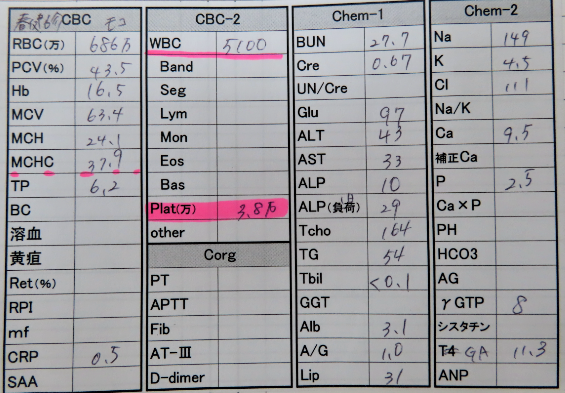 CBC モコ
RBC(万) 686万
PCV(%) 43.5
Hb 16.5
MCV 63.4
MCH 24.1
MCHC 37.9
TP 6.2
BC
溶血
黄疸
Ret(%)
RPI
mf
CRP 0.5
SAA
CBC-2
WBC 5100
Band
Seg
Lym
Mon
Eos
Bas
Plat(万) 3.8万
other
Corg
PT
APTT
Fib
AT-III
D-dimer
Chem-1
BUN 27.7
Cre 0.67
UN/Cre
Glu 97
ALT 43
AST 33
ALP 10
ALP(負荷) 29
Tcho 164
TG 54
Tbil <0.1
GGT
Alb 3.1
A/G 1.0
Lip 31
Chem-2
Na 149
K 4.5
Cl 111
Na/K
Ca 9.5
補正Ca
P 2.5
Ca×P
PH
HCO3
AG
γGTP 8
シスタチン
T4 GA 11.3
ANP